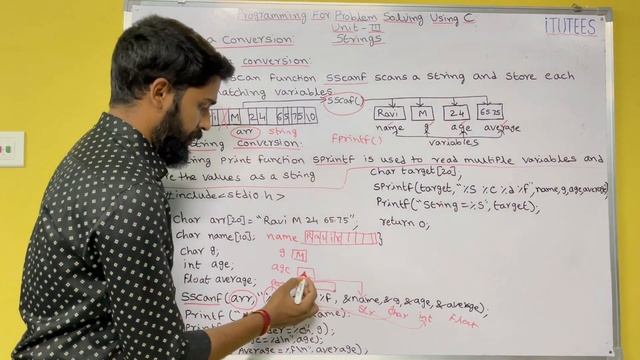 Programming For Problem Solving Using C
iTUTEES
Unit-III
a Conversion:
Strings
conversion:
scan function sscanf scans a string and store each
matching variables
sscaf()
M 24 6575 \0
Ravi M 24 6575
arr string
name g age average
fprintf()
variables
string conversion:
Print function sprintf is used to read multiple variables and
the values as a string
char target[20];
#include<stdio.h>
sprintf(target,"%s %c %d %f",name,g,age,average);
Printf("String=%s",target);
char arr[20]="Ravi M 24 65.75";
return 0;
}
char name[10]; name Ravi
char g; g M
int age; age
float average;
sscanf(arr, %f, &name,&g,&age,&average);
Str char int float
Printf( name);
g);
=%d\n",age);
Average=%f\n",average);